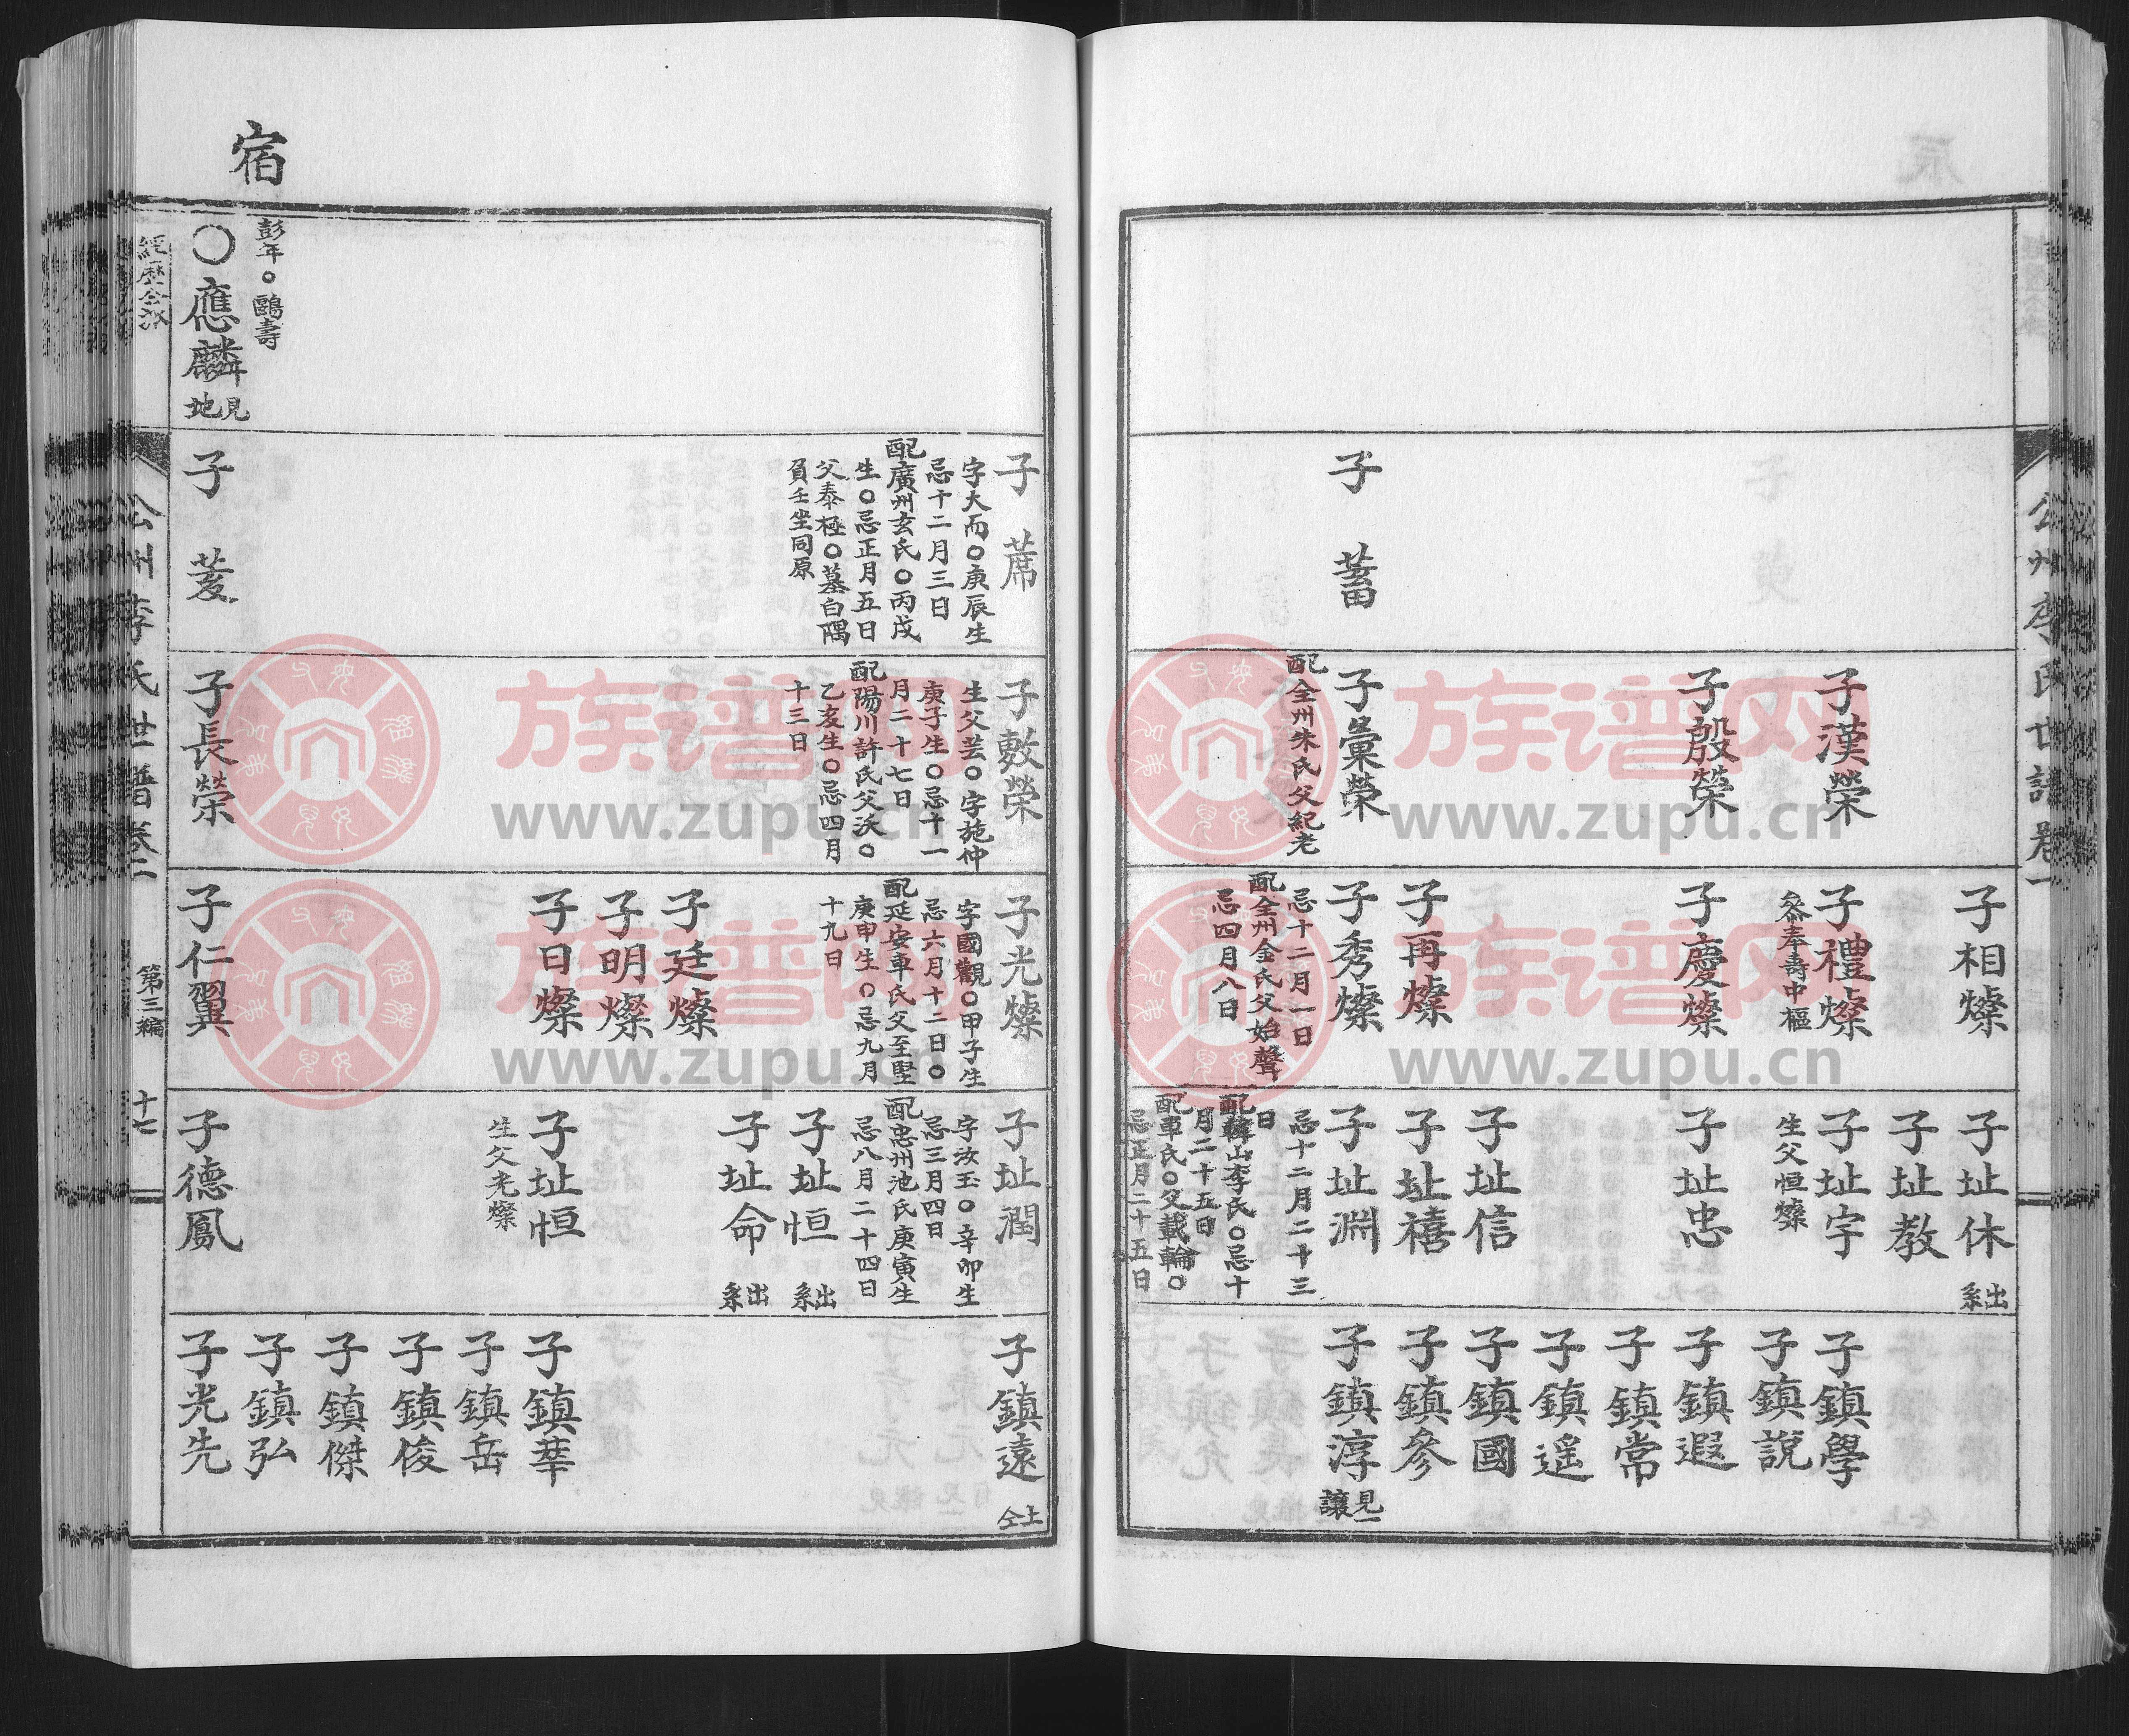 公州李氏世譜卷一
子蓄
子漢榮
子殷榮
子彙榮
配全州朱氏父紀老
子相燦
子禮燦
叅奉壽中樞
子慶燦
子再燦
子秀燦
忌十二月一日
配全州金氏父始聲
忌四月八日
子址休
出系
子址教
子址宇
生父恒燦
子址忠
子址信
子址禧
子址淵
忌十二月二十三
日
配韓山李氏〇忌十
月二十五日
配車氏〇父載輪〇
忌正月二十五日
子鎮學
子鎮說
子鎮遐
子鎮常
子鎮遥
子鎮國
子鎮參
子鎮淳
見一
讓
宿
彭年〇鷗壽
〇應麟
見地
經歷公派
公州李氏世譜卷二
第三編
十七
子蓆
字大而〇庚辰生
忌十二月三日
配廣州玄氏〇丙戌
生〇忌正月五日
父泰極〇墓白隅
負壬坐同原
子菱
子敷榮
生父芸〇字施仲
庚子生〇忌十一
月二十七日
配陽川許氏父沃〇
乙亥生〇忌四月
十三日
子長榮
子光燦
字國觀〇甲子生
忌六月十二日〇
配延安車氏父至堅
庚申生〇忌九月
十九日
子廷燦
子明燦
子日燦
子仁翼
子址潤
字汝玉〇辛卯生
忌三月四日
配忠州池氏庚寅生
忌八月二十四日
子址恒
出系
子址命
出系
子址恒
生父光燦
子德鳳
子鎮遠
上仝
子鎮華
子鎮岳
子鎮俊
子鎮傑
子鎮弘
子光先
族谱网
www.zupu.cn
族谱网
www.zupu.cn
族谱网
www.zupu.cn
族谱网
www.zupu.cn